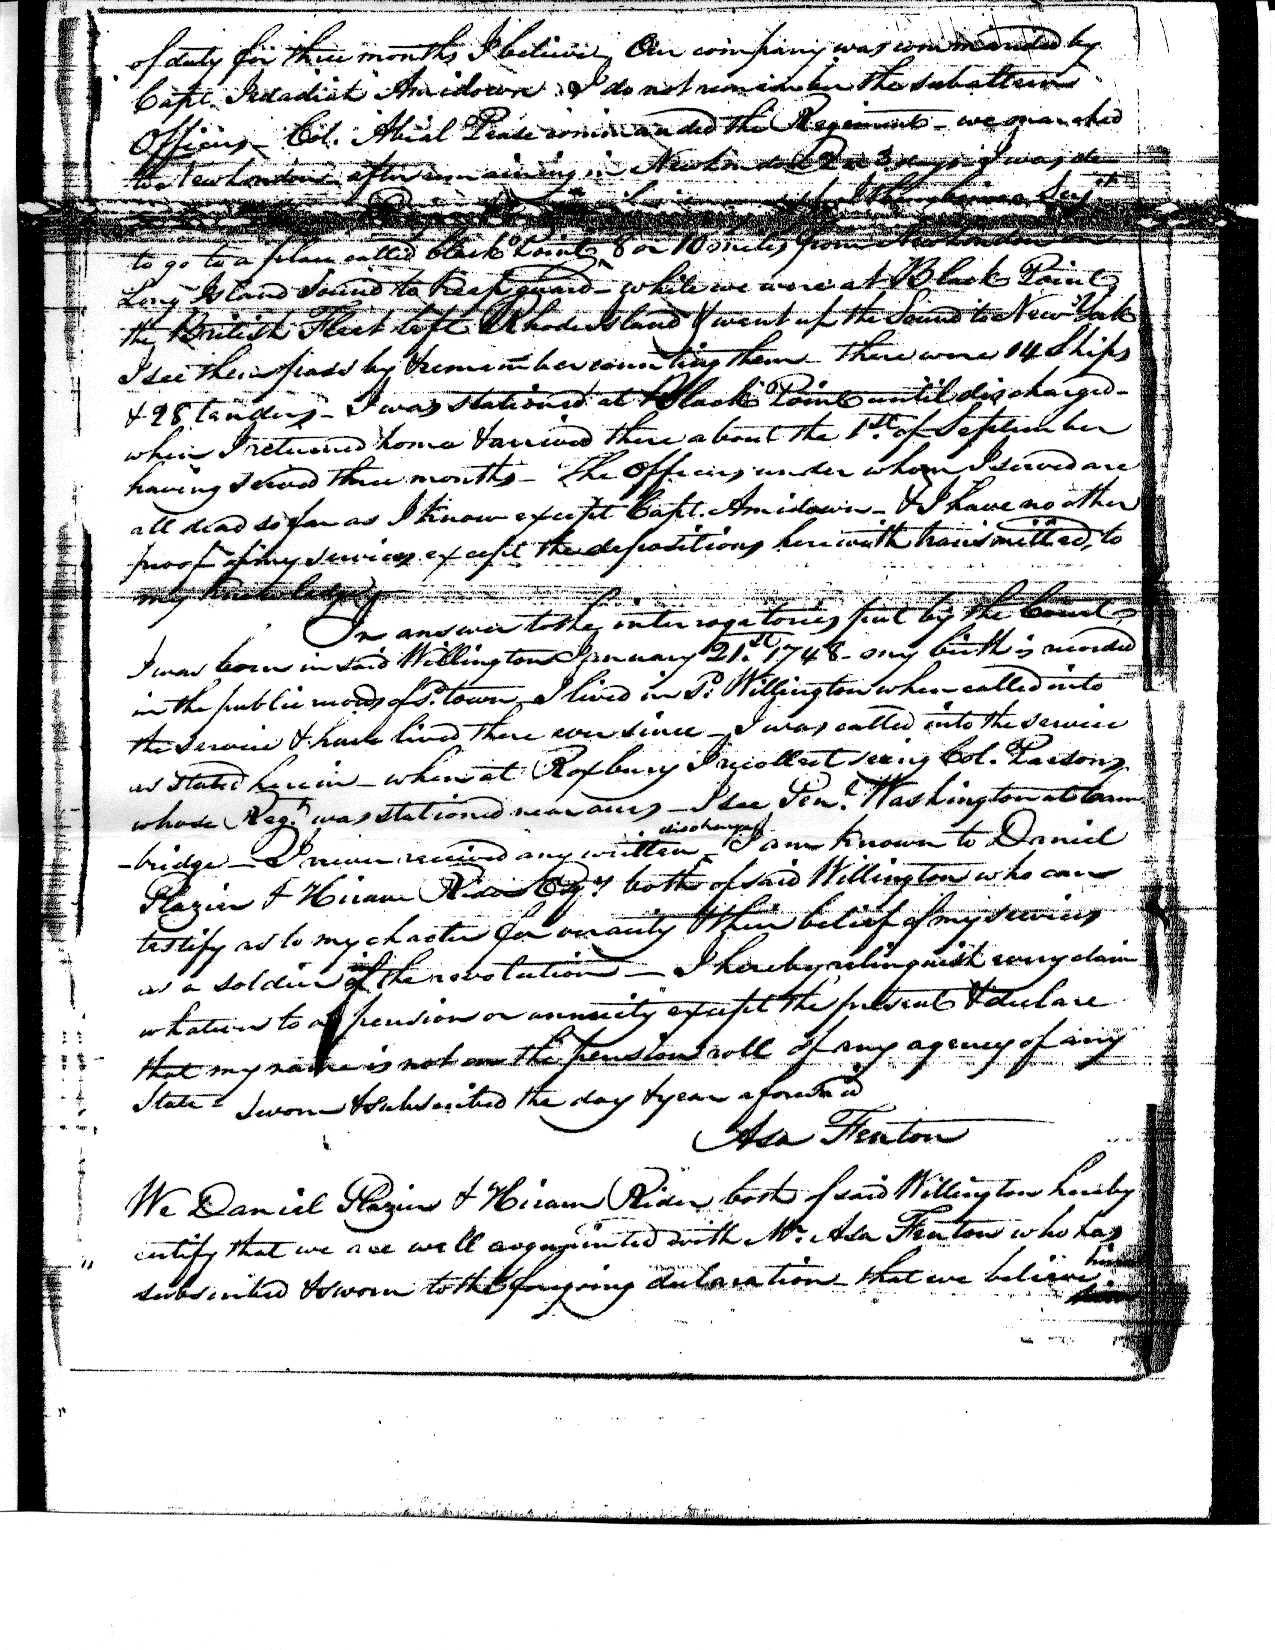 of duty for three months I believe, Our company was commanded by
Capt. Jedadiah Amidown & I do not remember the subaltern
Officers - Col. Abial Pease commanded the Regiment - we marched
to New London after remaining in New London 2 or 3 days I was de
Serj.t
to go to a place called black Point, 8 or 10 miles from New London on
Long Island Sound to keep guard - while we were at Black Point
the British Fleet left Rhode Island & went up the Sound to New York
I see them pass by & remember counting them - there were 14 Ships
& 98 tenders - I was stationed at Black Point until discharged -
when I returned home & arrived there about the 1st. of September
having served three months - The Officers under whom I served are
all dead so far as I know except Capt. Amidown - & I have no other
proof of my services except the depositions herewith transmitted, to
my knowledge
In answer to the interrogatories put by the Court
I was born in said Willington January 21.st 1748 - my birth is recorded
in the public records of sd. town - I lived in sd. Willington when called into
the service & have lived there ever since - I was called into the service
as stated herein - when at Roxbury I recollect seeing Col. Parsons
whose Regt. was stationed near ours - I see Genl. Washington at Cam
-bridge - I never received any written discharge - I am known to Daniel
Glazier & Hiram Rider Esqrs both of said Willington who can
testify as to my chacter for veracity & their belief of my services
as a soldier of the revolution - I hereby relinquish every claim
whatever to a pension or annuity except the present & declare
that my name is not on the pension roll of any agency of any
State - Sworn & subscribed the day & year aforesaid
Asa Fenton
We Daniel Glazier & Hiram Rider both of said Willington hereby
certify that we are well acquainted with Mr. Asa Fenton who has
subscribed & sworn to the foregoing declaration - that we believe him